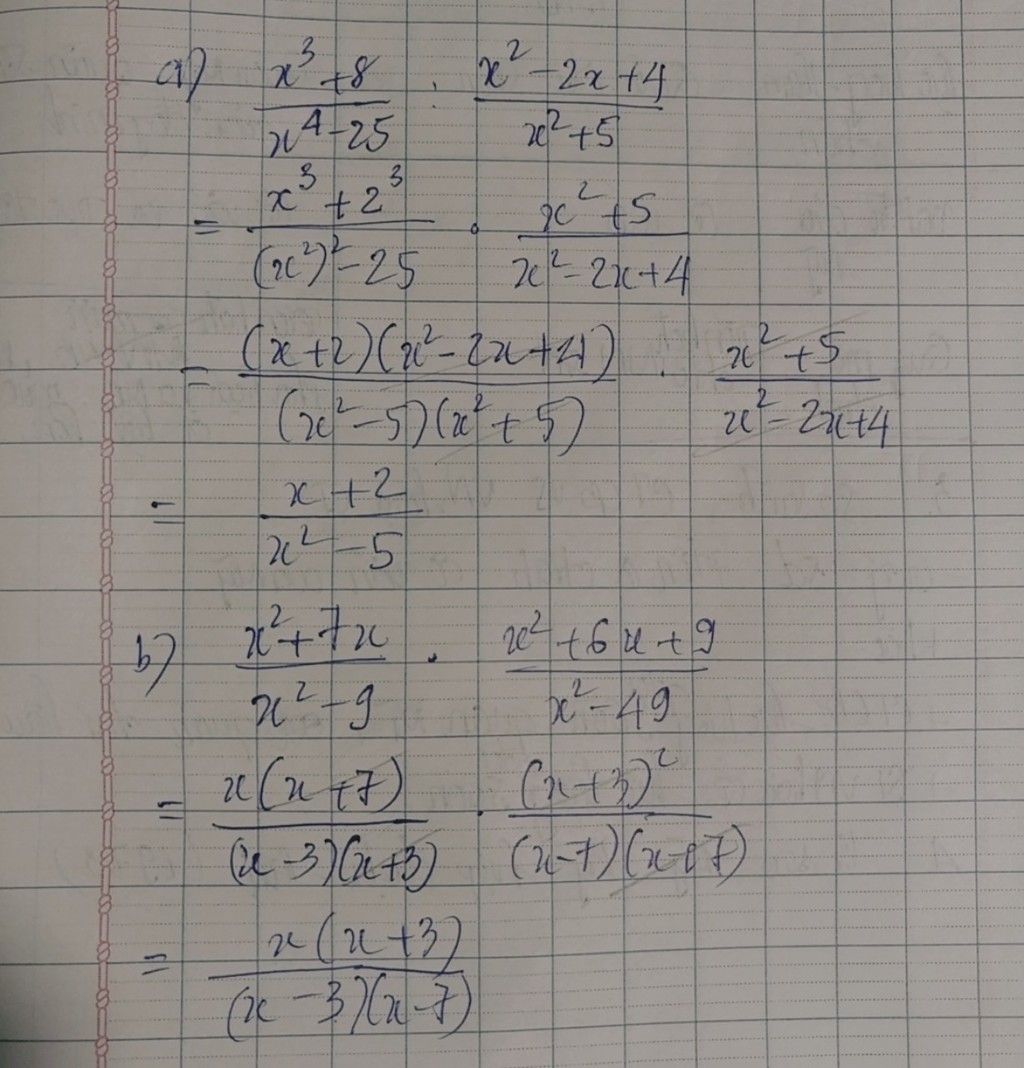 a) \frac{x^3+8}{x^4-25} : \frac{x^2-2x+4}{x^2+5}
= \frac{x^3+2^3}{(x^2)^2-25} \cdot \frac{x^2+5}{x^2-2x+4}
= \frac{(x+2)(x^2-2x+4)}{(x^2-5)(x^2+5)} \cdot \frac{x^2+5}{x^2-2x+4}
= \frac{x+2}{x^2-5}
b) \frac{x^2+7x}{x^2-9} \cdot \frac{x^2+6x+9}{x^2-49}
= \frac{x(x+7)}{(x-3)(x+3)} \cdot \frac{(x+3)^2}{(x-7)(x+7)}
= \frac{x(x+3)}{(x-3)(x-7)}